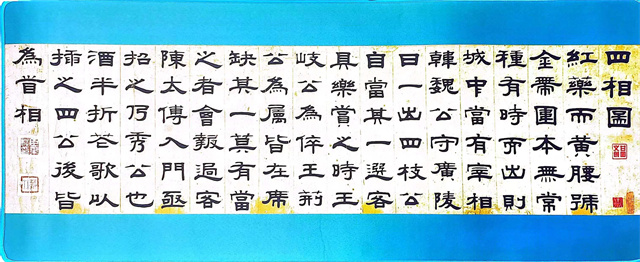 四相圖
紅藥而黃腰號
金帶圍本無常
種有時而出則
城中當有宰相
韓魏公守廣陵
日一出四枝公
自當其一選客
具樂賞之時王
岐公為倅王荊
公為屬皆在席
缺其一莫有當
之者會報過客
陳太傅入門亟
招之乃秀公也
酒半折花歌以
插之四公後皆
為首相